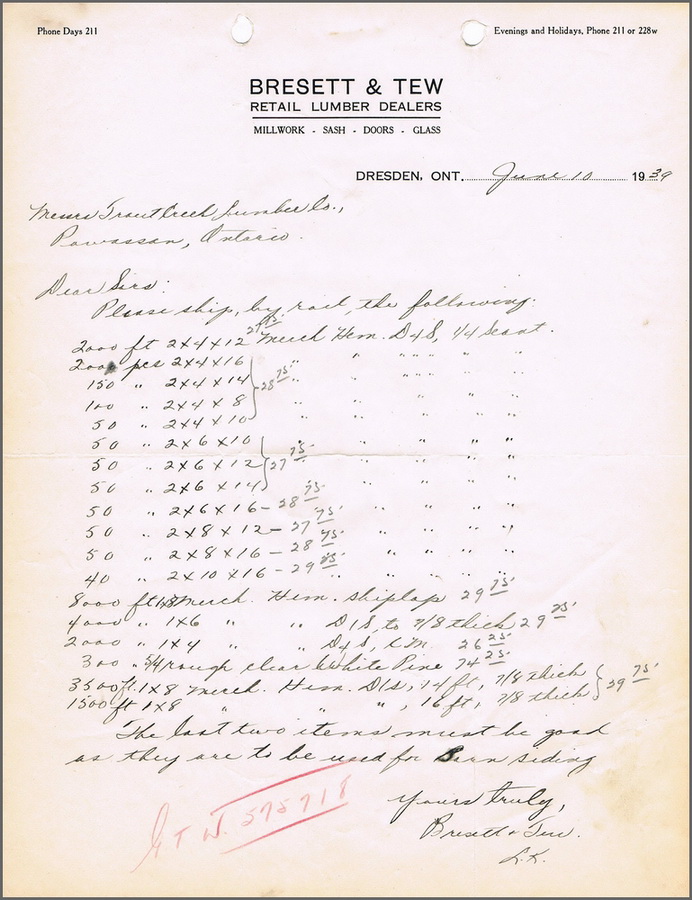 Phone Days 211
Evenings and Holidays, Phone 211 or 228w
BRESETT & TEW
RETAIL LUMBER DEALERS
MILLWORK - SASH - DOORS - GLASS
DRESDEN, ONT. June 10 1939
Messrs Trout Creek Lumber Co.,
Powassan, Ontario.
Dear Sirs:
Please ship, by rail, the following:
2000 ft 2x4x12 Merch Hem. D4S, 1/4 Scant.
200 pcs 2x4x16 " " " " " "
150 " 2x4x14 28 75 " " " "
100 " 2x4x8 " " " "
50 " 2x4x10 " " " "
50 " 2x6x10 " " " "
50 " 2x6x12 27 75 " " "
50 " 2x6x14 " " " "
50 " 2x6x16 - 28 75 " " "
50 " 2x8x12 - 27 75 " " "
50 " 2x8x16 - 28 75 " " "
40 " 2x10x16 - 29 " " " "
8000 ft 1x8 Merch. Hem. shiplap 29 75
4000 " 1x6 " " D1S to 7/8 thick 29
2000 " 1x4 " " D4S, 26 25
300 " 5/4 rough clear White Pine 74 25
3500 ft. 1x8 Merch. Hem. D1S, 14 ft, 7/8 thick
1500 ft 1x8 " " ", 16 ft, 7/8 thick 75
The last two items must be good
as they are to be used for Barn siding
Yours truly,
Bresett & Tew.
L.K.
G T W. 575718